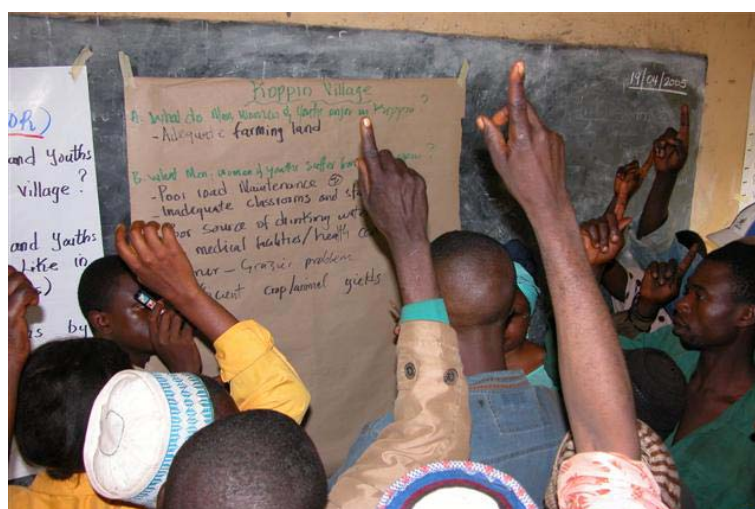 OR)
and Youths
village?
and Youths
Like in
s)
by
Koppin Village
A. What do Men, women & Youths enjoy in Koppin?
- Adequate farming land
B. What Men, women & Youths suffer
- Poor road Maintenance
- Inadequate classrooms and
Poor source of drinking
medical facilities/health
- Grazier problem
crop/animal yields
19/04/2005